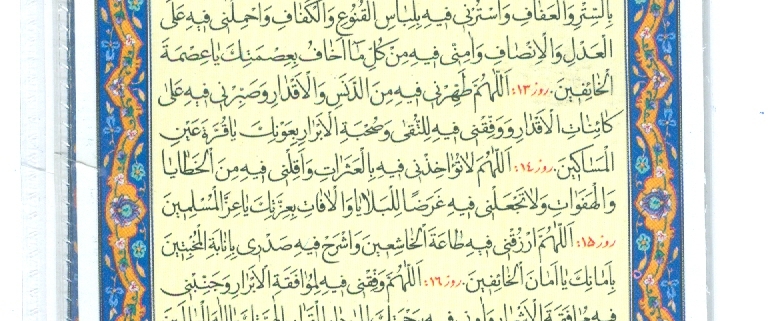 بِالسِّتْرِ وَالْعَفَافِ وَاسْتُرْنِي فِيهِ بِلِبَاسِ الْقُنُوعِ وَالْكَفَافِ وَاحْمِلْنِي فِيهِ عَلَى
الْعَدْلِ وَالْاِنْصَافِ وَاٰمِنِّي فِيهِ مِنْ كُلِّ مَا اَخَافُ بِعِصْمَتِكَ يَا عِصْمَةَ
الْخَائِفِينَ. روز ۱۳: اَللّٰهُمَّ طَهِّرْنِي فِيهِ مِنَ الدَّنَسِ وَالْاَقْذَارِ وَصَبِّرْنِي فِيهِ عَلَى
كَائِنَاتِ الْاَقْدَارِ وَوَفِّقْنِي فِيهِ لِلتُّقٰى وَصُحْبَةِ الْاَبْرَارِ بِعَوْنِكَ يَا قُرَّةَ عَيْنِ
الْمَسَاكِينَ. روز ۱۴: اَللّٰهُمَّ لَا تُؤَاخِذْنِي فِيهِ بِالْعَثَرَاتِ وَاَقِلْنِي فِيهِ مِنَ الْخَطَايَا
وَالْهَفَوَاتِ وَلَا تَجْعَلْنِي فِيهِ غَرَضًا لِلْبَلَايَا وَالْاٰفَاتِ بِعِزَّتِكَ يَا عِزَّ الْمُسْلِمِينَ
روز ۱۵: اَللّٰهُمَّ ارْزُقْنِي فِيهِ طَاعَةَ الْخَاشِعِينَ وَاشْرَحْ فِيهِ صَدْرِي بِاِنَابَةِ الْمُخْبِتِينَ
بِاَمَانِكَ يَا اَمَانَ الْخَائِفِينَ. روز ۱۶: اَللّٰهُمَّ وَفِّقْنِي فِيهِ لِمُوَافَقَةِ الْاَبْرَارِ وَجَنِّبْنِي